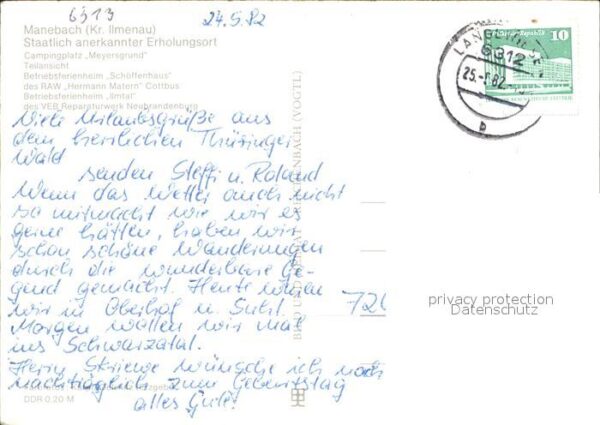 6313
24.5.82
Manebach (Kr. Ilmenau)
Staatlich anerkannter Erholungsort
Campingplatz „Meyersgrund"
Teilansicht
Betriebsferienheim „Schöffenhaus"
des RAW „Hermann Matern" Cottbus
Betriebsferienheim „Ilmtal"
des VEB Reparaturwerk Neubrandenburg
10
6312
25.-5.82
b
Viele Urlaubsgrüße aus
dem herrlichen Thüringer
Wald
senden Steffi u. Roland
Wenn das Wetter auch nicht
so mitmacht wie wir es
gerne hätten, haben wir
schon schöne Wanderungen
durch die wunderbare Ge-
gend gemacht. Heute waren
wir in Oberhof u. Suhl.
Morgen wollen wir mal
ins Schwarzatal.
Herrn Striewe wünsche ich noch
nachträglich zum Geburtstag
alles Gute!
DDR 0,20 M
BILD UND HEIMAT REICHENBACH (VOGTL)
720
privacy protection
Datenschutz